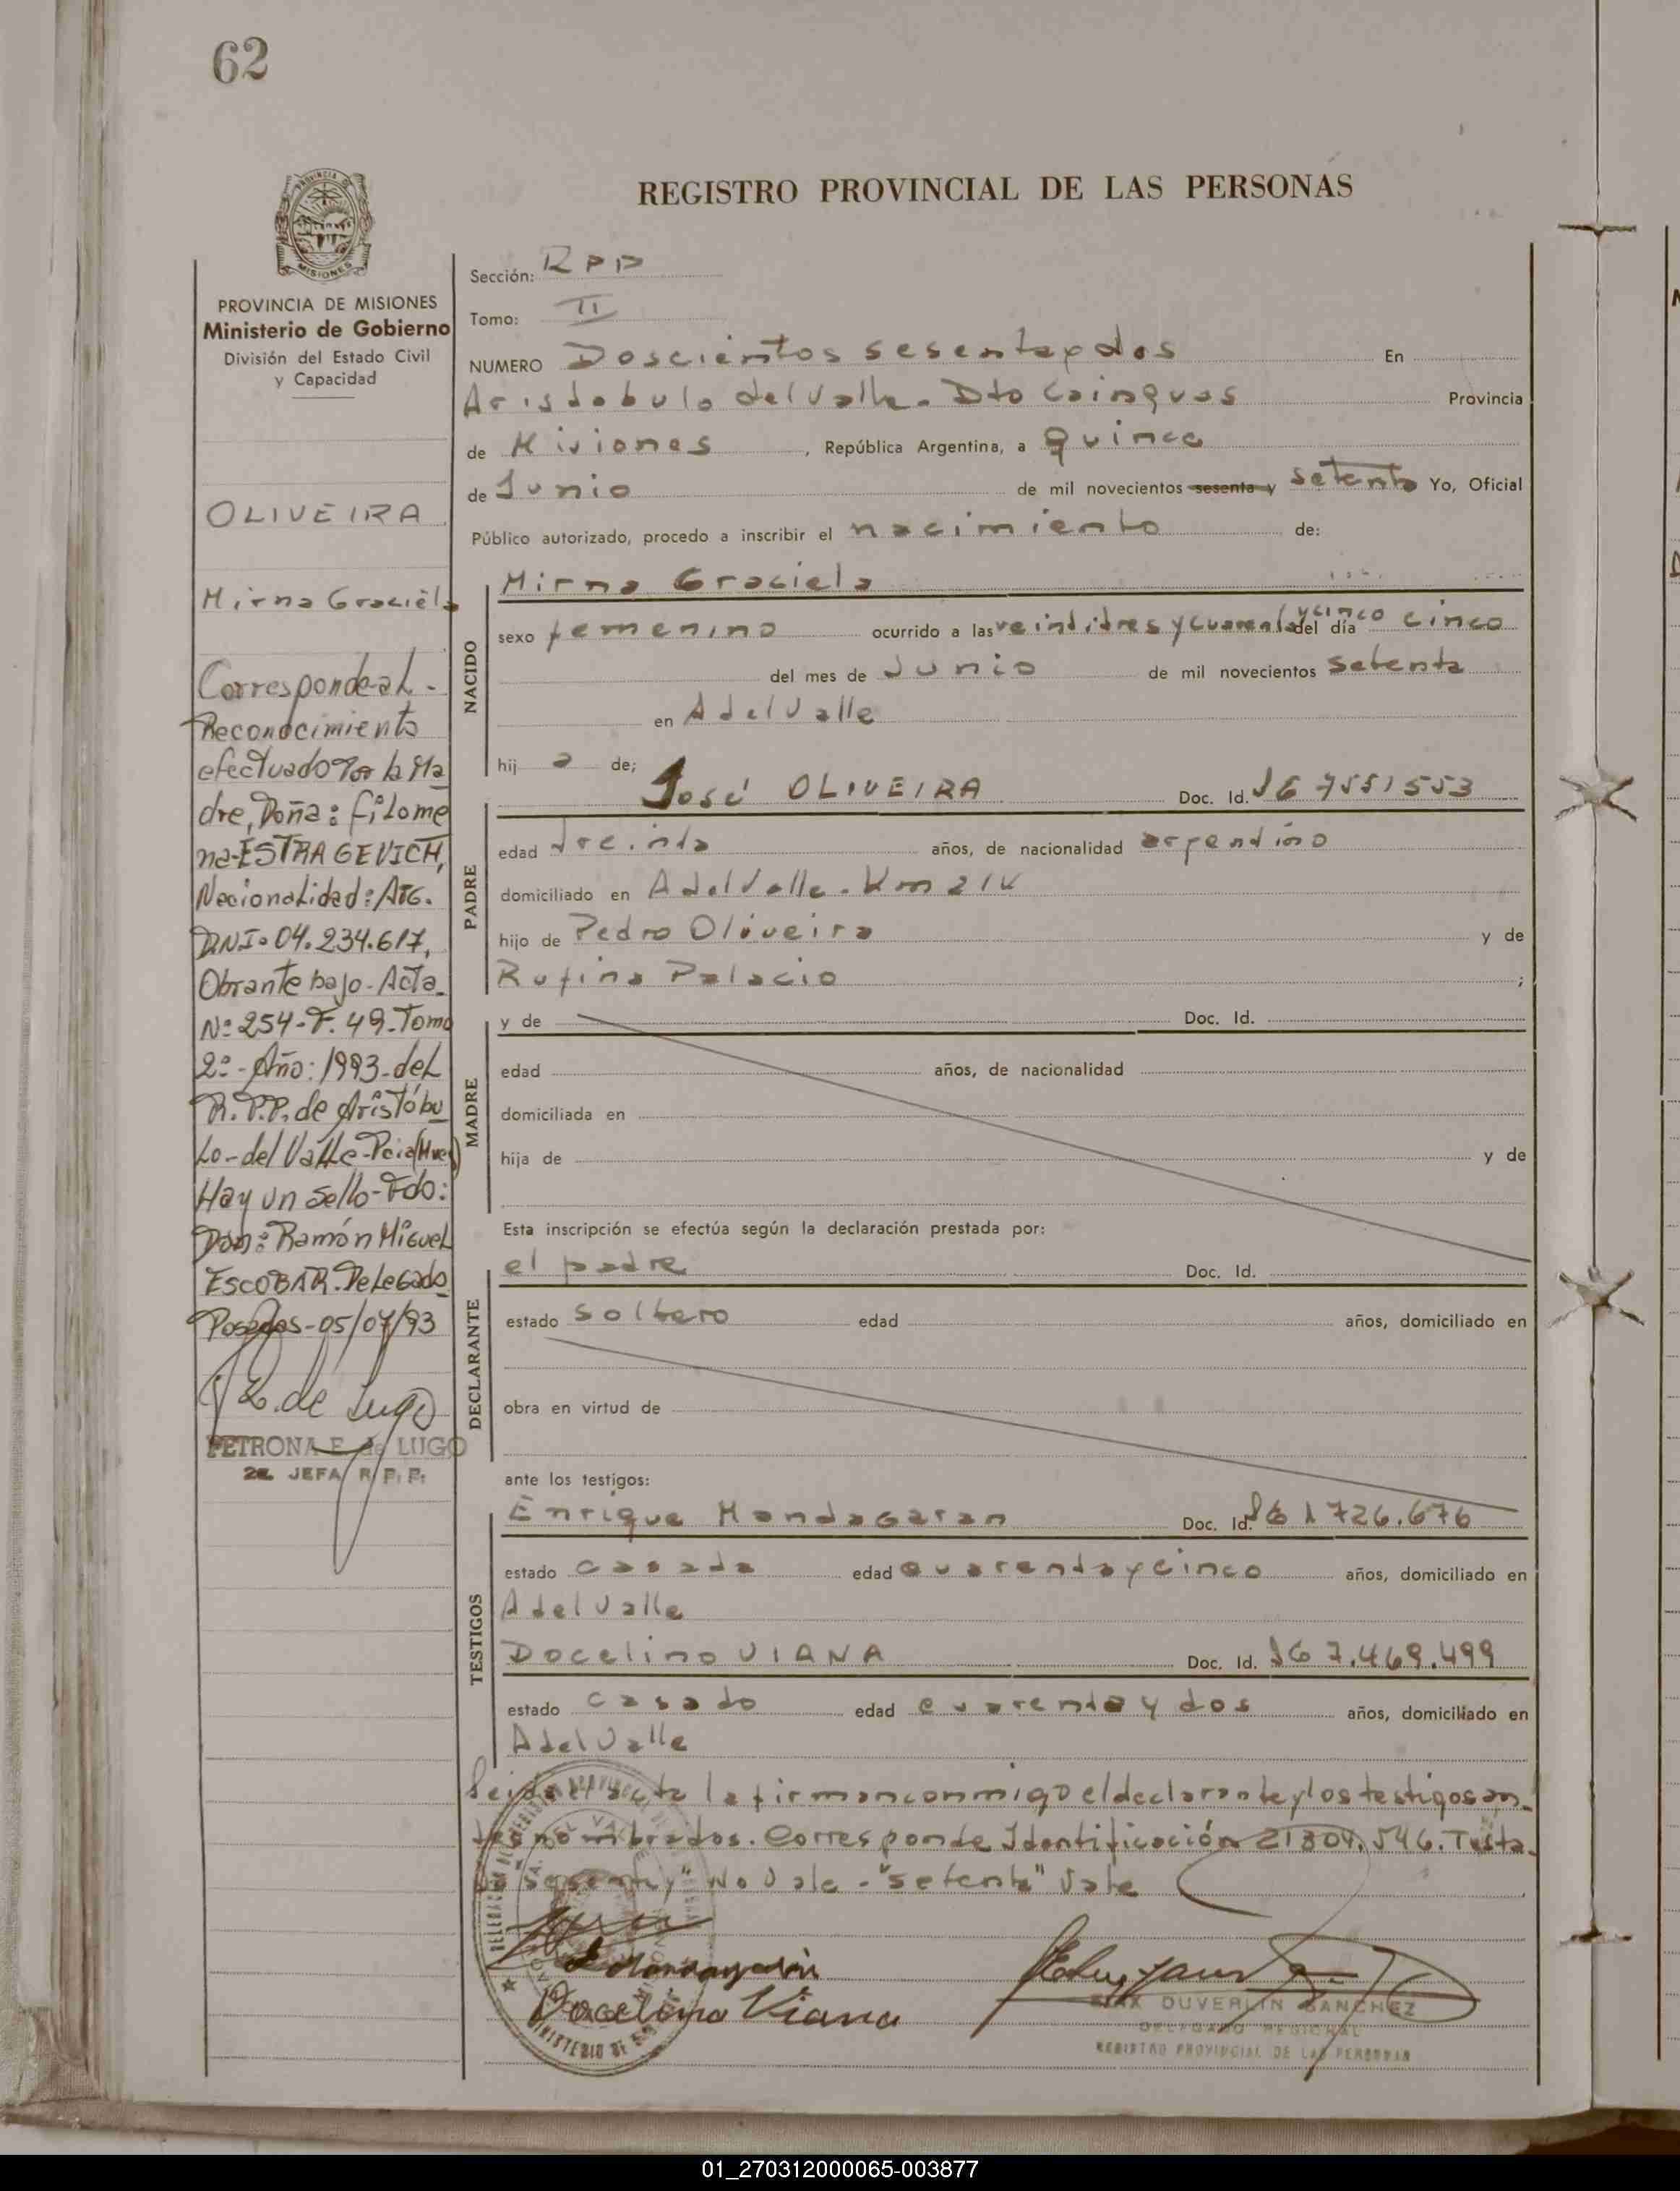 62
REGISTRO PROVINCIAL DE LAS PERSONAS
PROVINCIA DE
MISIONES
PROVINCIA DE MISIONES
Ministerio de Gobierno
División del Estado Civil
y Capacidad
OLIVEIRA
Mirna Graciela
Corresponde-al-
Reconocimiento
efectuado Por la Ma
dre, Doña: Filome
na-ESTRAGEVICH,
Nacionalidad: ARG.
D.N.I: 04.234.617,
Obrante bajo-Acta
Nº 254-F. 49-Tomo
2º-Año: 1993-del
R.P.P. de Aristóbu
Lo-del Valle-Pcia(Mnes)
Hay un sello-Fdo:
Don: Ramón Miguel
ESCOBAR. Delegado
Posadas-05/07/93
E. de Lugo
PETRONA E. de LUGO
2a. JEFA R.P.P.
Sección: RPP
Tomo: II
NUMERO Doscientos sesentaydos En
Aristobulo del Valle. Dto Cainguas Provincia
de Misiones, República Argentina, a quince
de Junio de mil novecientos sesenta y setenta Yo, Oficial
Público autorizado, procedo a inscribir el nacimiento de:
NACIDO
Mirna Graciela
sexo femenino ocurrido a las veintitres y cuarenta y cinco del día cinco
del mes de Junio de mil novecientos setenta
en A del Valle
hij a de;
PADRE
José OLIVEIRA Doc. Id. I6 7551553
edad treinta años, de nacionalidad argentino
domiciliado en A del Valle. Km 214
hijo de Pedro Oliveira y de
Rufina Palacio ;
MADRE
y de Doc. Id.
edad años, de nacionalidad
domiciliada en
hija de y de
Esta inscripción se efectúa según la declaración prestada por:
DECLARANTE
el padre Doc. Id.
estado soltero edad años, domiciliado en
obra en virtud de
ante los testigos:
TESTIGOS
Enrique Mondagaran Doc. Id. I6 1726.676
estado casado edad cuarentaycinco años, domiciliado en
A del Valle
Docelino VIANA Doc. Id. I6 7.469.499
estado casado edad cuarenta y dos años, domiciliado en
A del Valle
Leida el acta la firman conmigo el declarante y los testigos an-
tes nombrados. Corresponde Identificación 21304.546. Testa-
do "sesenta y" No Vale - "setenta" Vale
Docelino Viana
DUVERLIN SANCHEZ
DELEGADO REGIONAL
REGISTRO PROVINCIAL DE LAS PERSONAS
01_270312000065-003877